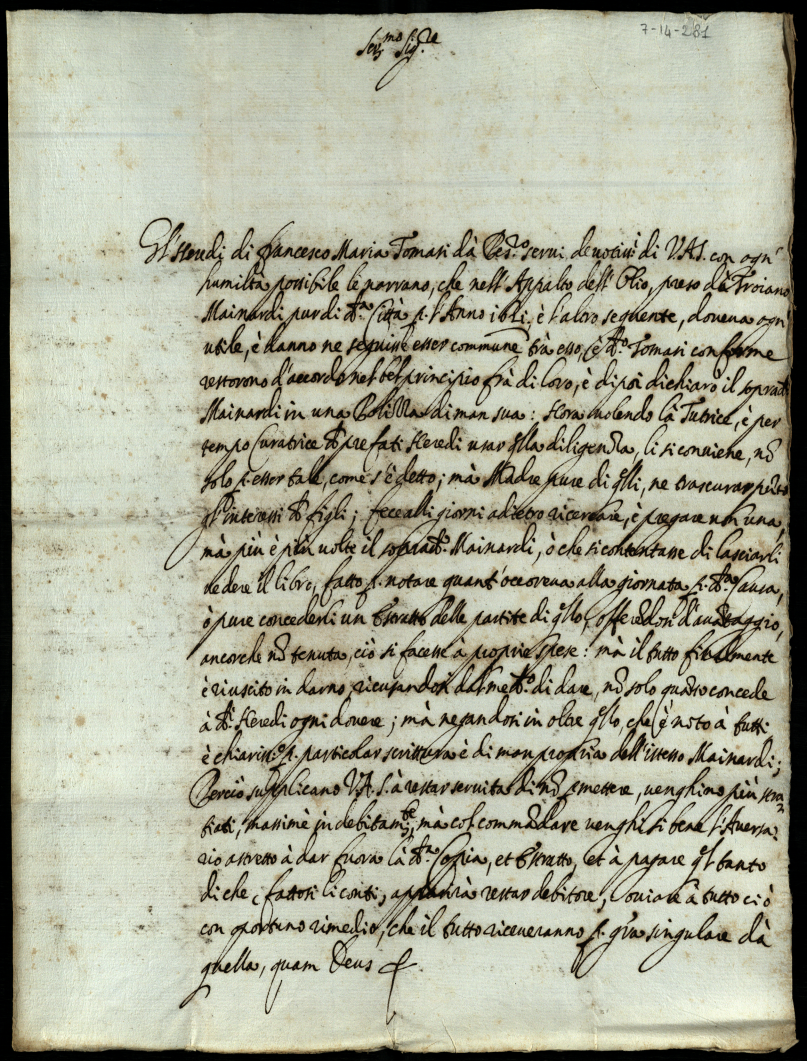 7-14-281
Ser.mo Sig.re
Gl'Heredi di Francesco Maria Tomasi dà Pes.ro serui deuotiss.i di V.A.S. con ogn'
humiltà possibile le narrano, che nell'Appalto dell'Olio, preso dà Troiano
Mainardi pur di d.a Città p. l'Anno è l'altro seguente, doueua ogn
utile, è danno ne seguisse esser commune trà esso, è d.o Tomasi conforme
restorono d'accordo nel bel principio frà di loro, è dipoi dichiarò il soprad.o
Mainardi in una Polizza di man sua: Hora uolendo là Tutrice, è per
tempo Curatrice d. prefati Heredi usar q.lla diligenza, li si conuiene, nõ
solo p. esser tale, come s'è detto; mà Madre pure di q.lli, ne trascurar
gl'interessi d. figli; fece alli giorni adietro ricercare, è pregare non una,
mà più è più uolte il soprad.o Mainardi, ò che si contentasse di lasciarli
uedere il libro, fatto p. notare quant'occorreua alla giornata p. d.a Causa,
ò pure concederli un Estratto delle partite di q.llo, offerẽdosi d'auãtaggio,
ancorche nõ tenuta, ciò si facesse à proprie spese: mà il tutto finalmente
è riuscito in darno, ricusandosi dal me.d.o di dare, nõ solo quãto concede
à d.i Heredi ogni douere; mà negandosi in oltre q.llo che è noto à tutti,
è chiariss.o p. particolar scrittura è di man propria dell'istesso Mainardi;
Perciò supplicano V.A.S. à restar seruita di nõ pmettere, uenghino più stra=
tiati, massime indebitam.te, mà col commãdare uenghi si bene l'Auersa=
rio astretto à dar fuora là d.a Copia, et Estratto, et à pagare q.l tanto
di che, fattosi li conti, apparirà restar debitore, Ouiare à tutto ciò
con oportuno rimedio, che il tutto riceueranno p. gr̃a singulare dà
quella, quam Deus